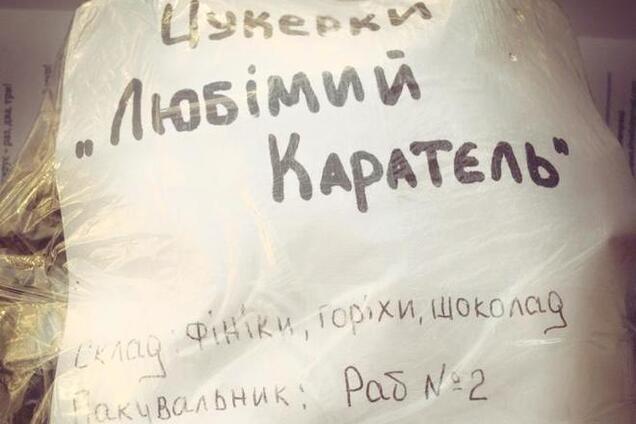 Цукерки
"Любімий
Каратєль"
Склад: Фініки, горіхи, шоколад
Пакувальник: Раб №2